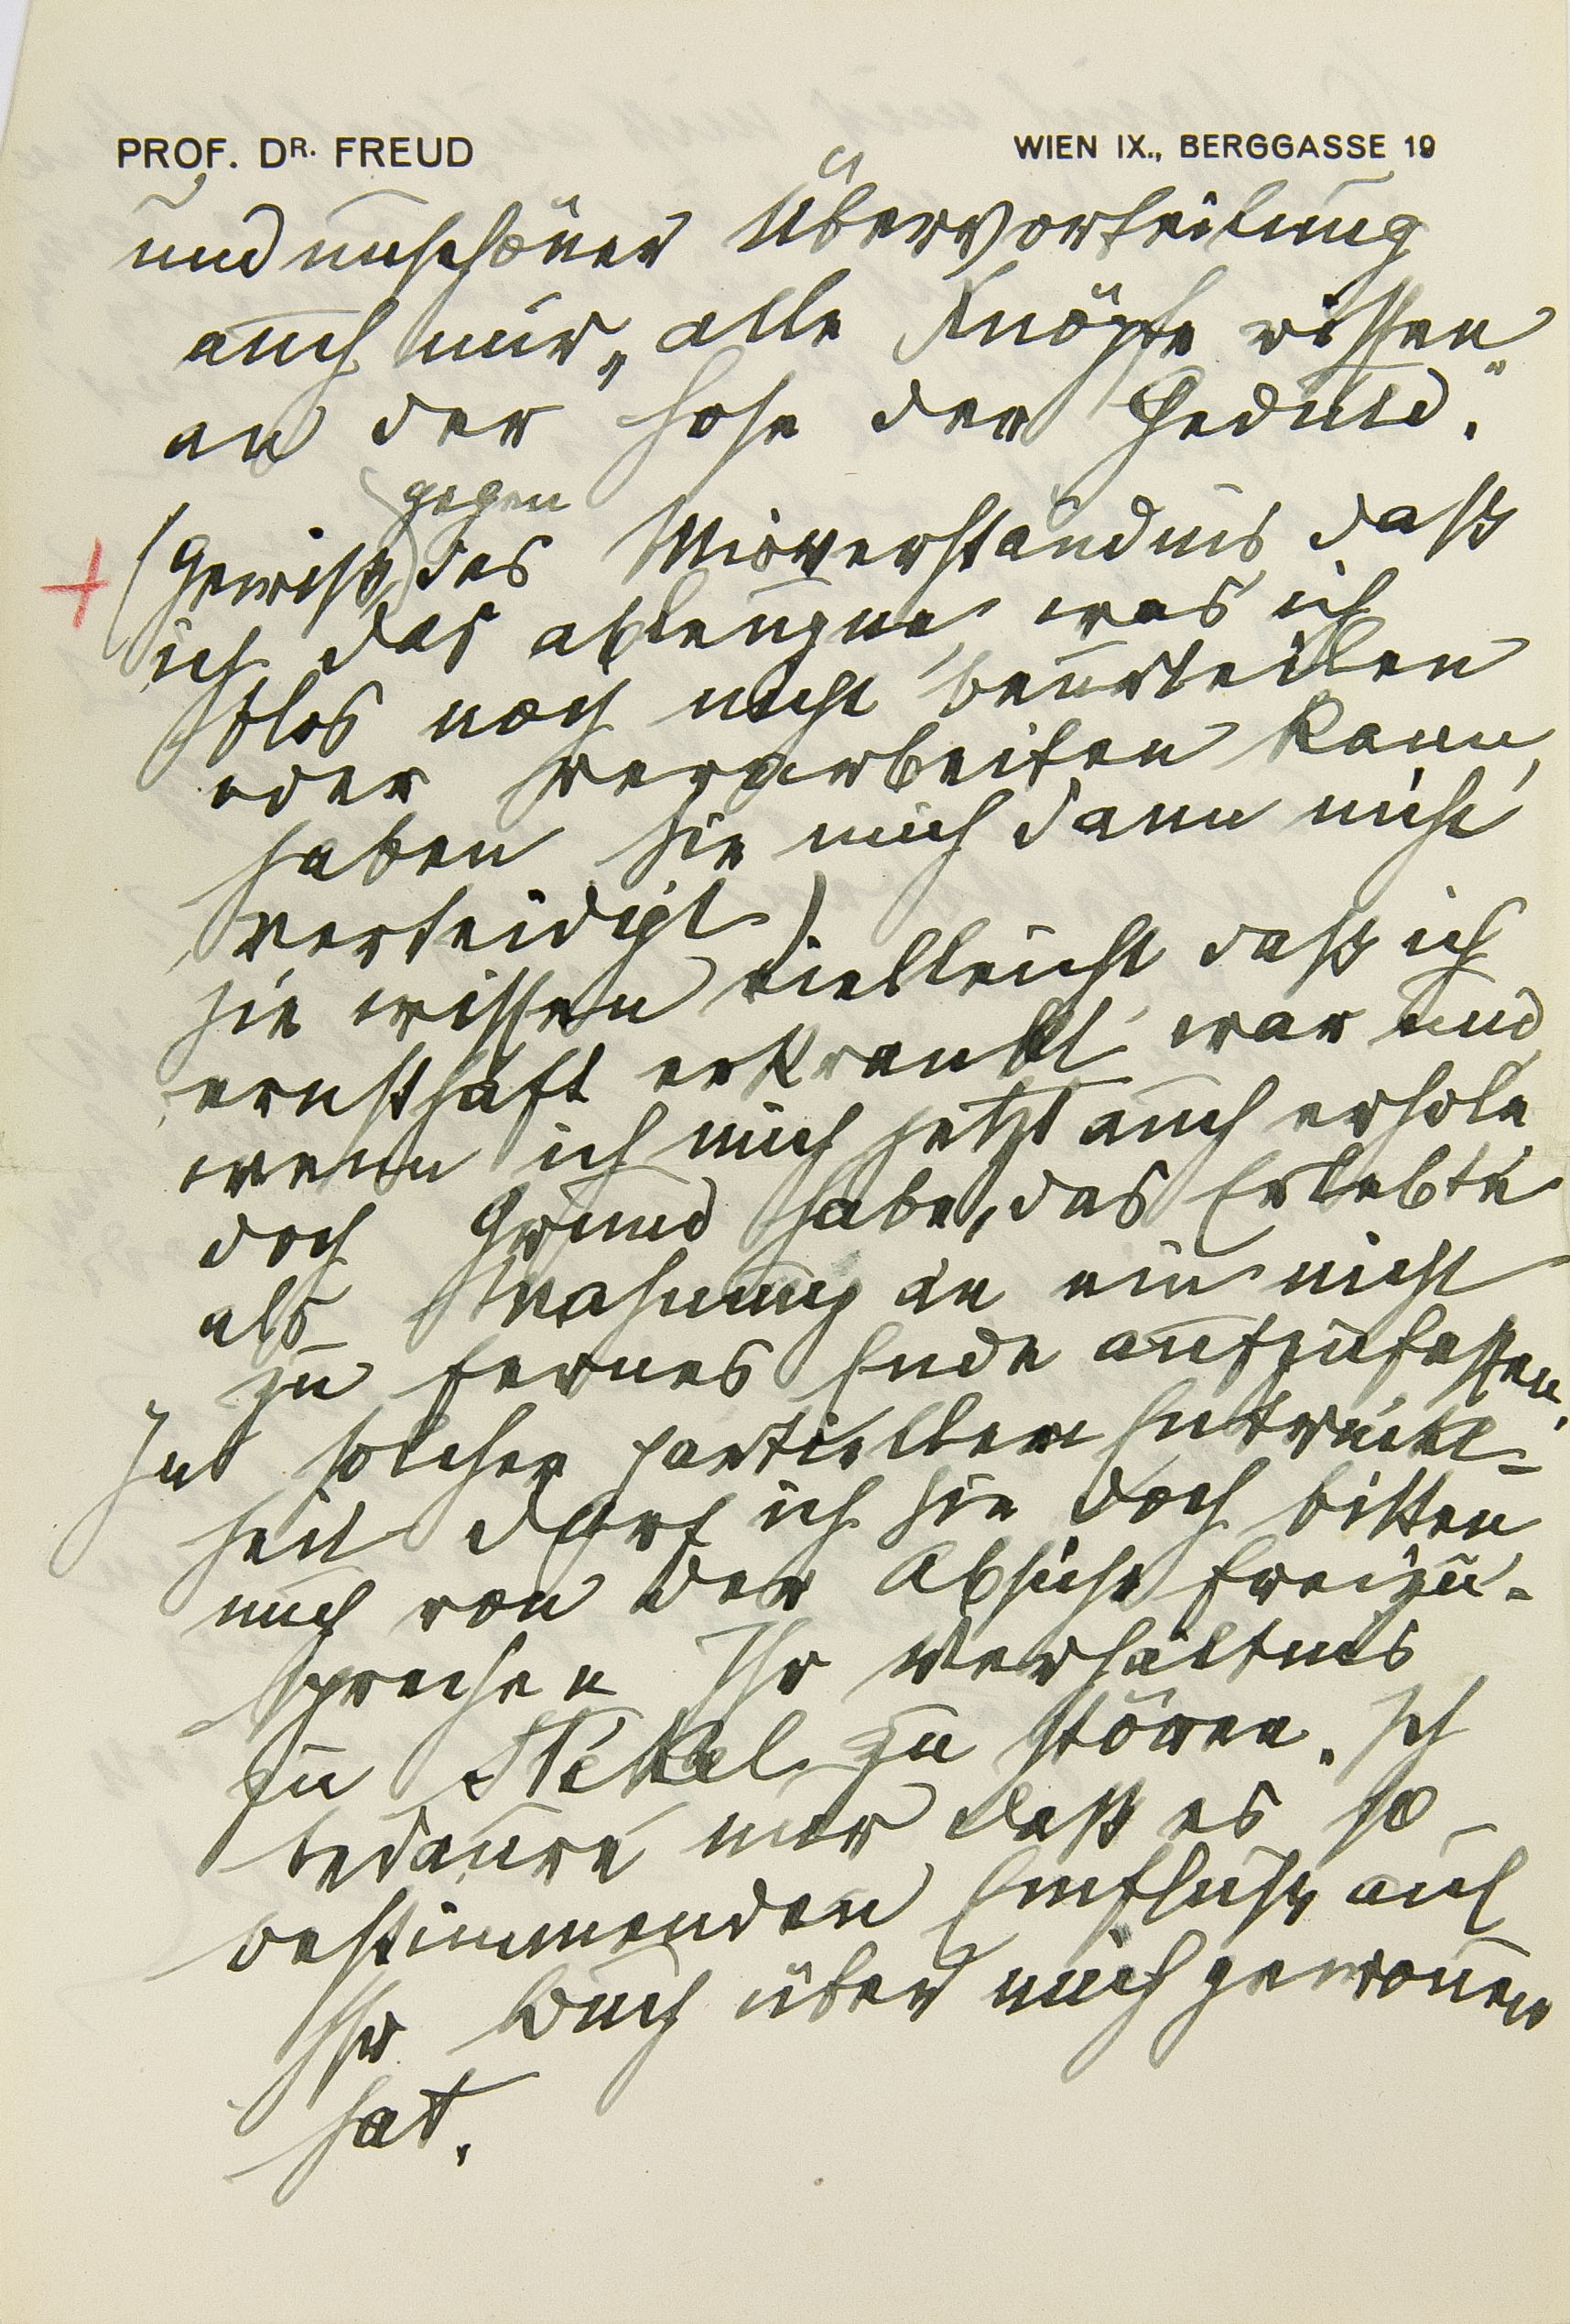 PROF. DR. FREUD WIEN IX., BERGGASSE 19
und unschöner Übervorteilung
auch mir „alle Knöpfe rissen
an der Hose der Geduld."
gegen
(Gewiß, das Misverständnis, daß
ich das ableugne, was ich
blos noch nicht beurteilen
oder verarbeiten kann,
haben Sie mich dann nicht
verteidigt)
Sie wissen vielleicht, daß ich
ernsthaft erkrankt war und
wenn ich mich jetzt auch erhole
doch Grund habe, das Erlebte
als Mahnung an ein nicht
zu fernes Ende aufzufassen.
In solcher partiellen Entrückt-
heit darf ich Sie doch bitten
mich von der Absicht freizu-
sprechen Ihr Verhältnis
zu Stekel zu stören. Ich
bedaure nur daß es so
bestimmenden Einfluß auf
Ihr Buch über mich gewonnen
hat.